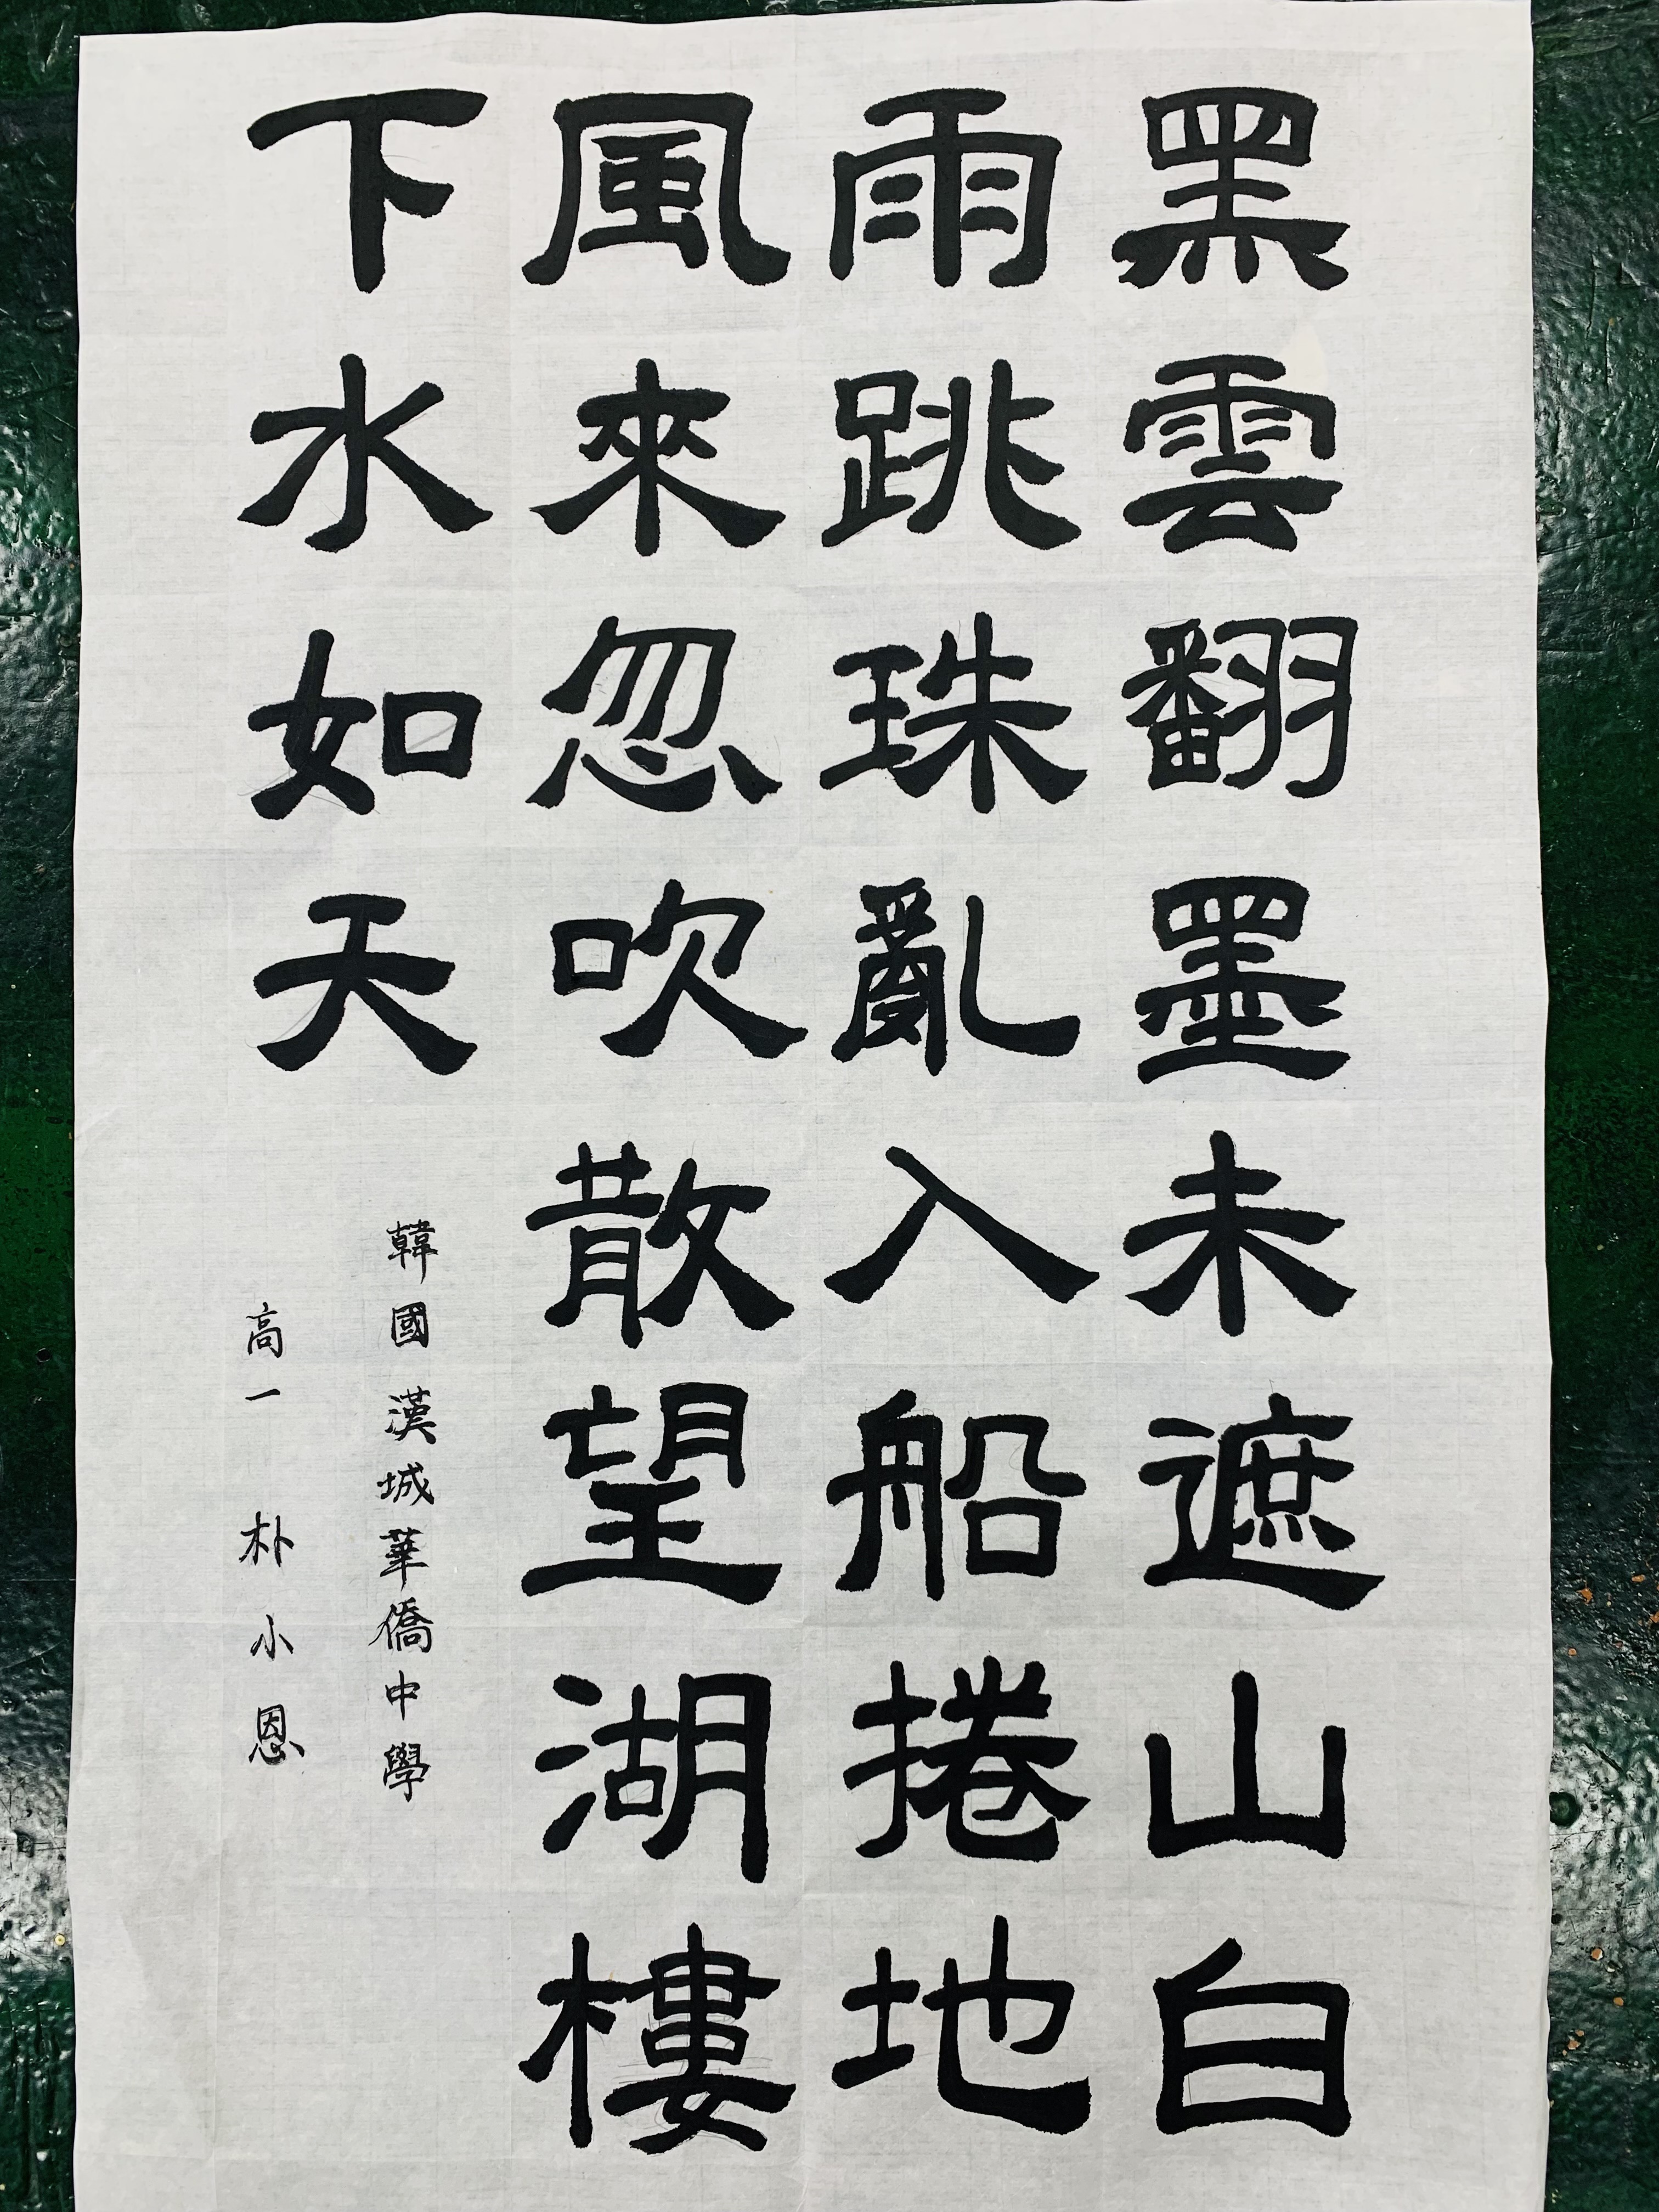 黑雲翻墨未遮山白
雨跳珠亂入船捲地
風來忽吹散望湖樓
下水如天
韓國漢城華僑中學
高一 朴小恩